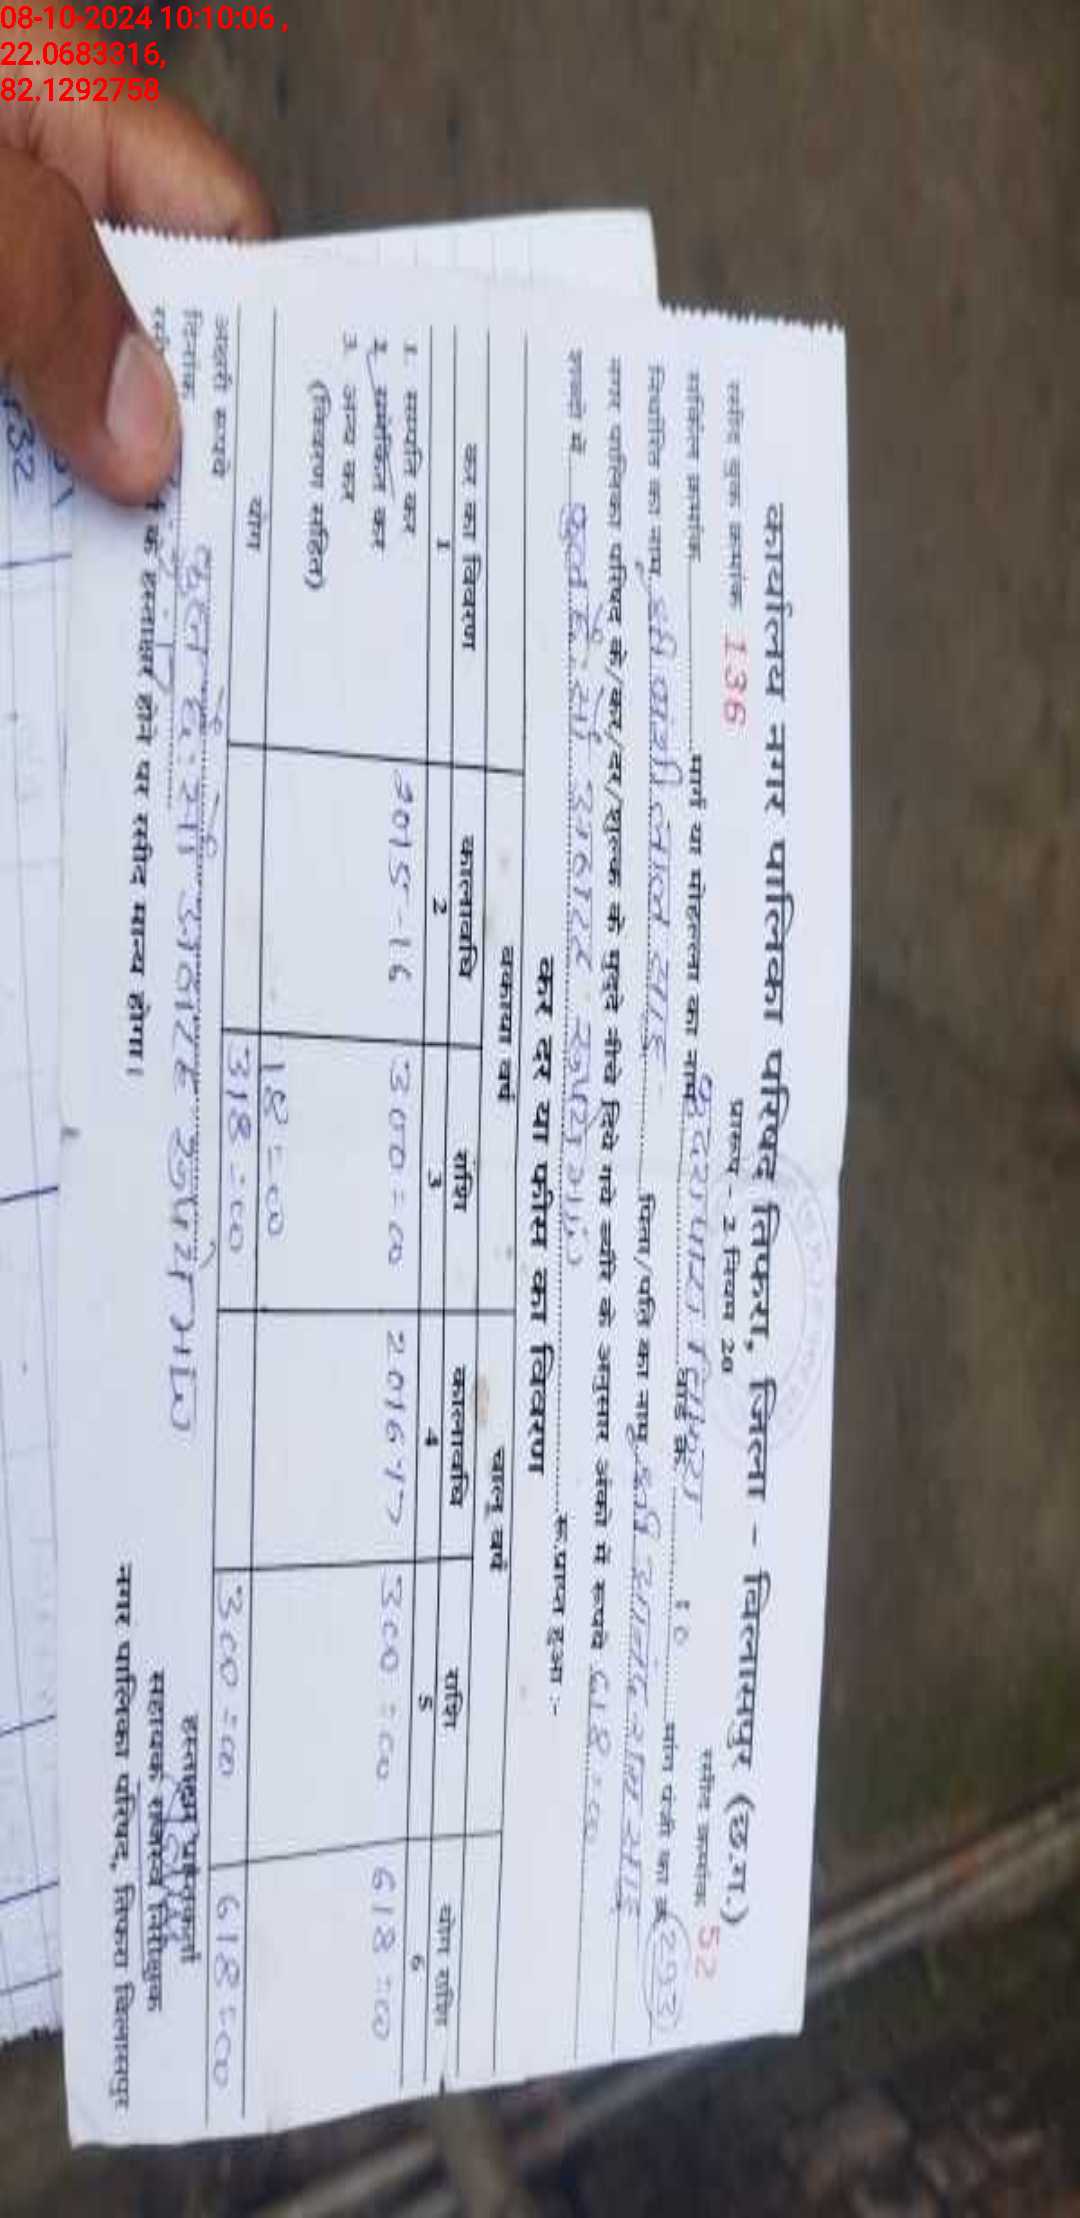 08-10-2024 10:10:06 ,
22.0683316,
82.1292758
कार्यालय नगर पालिका परिषद तिफरा, जिला - बिलासपुर (छ.ग.)
प्रारूप - 2 नियम 20
रसीद बुक क्रमांक 136 रसीद क्रमांक 52
सर्किल क्रमांक मार्ग या मोहल्ला का नाम वार्ड क्र. 10 मांग पंजी का क्र. 293
निर्धारिति का नाम श्री पिता/पति का नाम श्री
नगर पालिका परिषद के/कर/दर/शुल्क के मुद्दे नीचे दिये गये ब्यौरे के अनुसार अंको में रूपये 618=00
शब्दो में छः सौ अठारह रूपये मात्र रू.प्राप्त हुआ :-
कर दर या फीस का विवरण
बकाया वर्ष चालू वर्ष
कर का विवरण कालावधि राशि कालावधि राशि योग राशि
1 2 3 4 5 6
1. सम्पत्ति कर 2015-16 300=00 2016-17 300=00 618=00
2. समेकित कर
3. अन्य कर
(विवरण सहित)
18=00
योग 318=00 300=00 618=00
अक्षरी रूपये छः सौ अठारह रूपये मात्र
दिनांक
के हस्ताक्षर होने पर रसीद मान्य होगा।
हस्ताक्षर
सहायक राजस्व निरीक्षक
नगर पालिका परिषद, तिफरा बिलासपुर
132